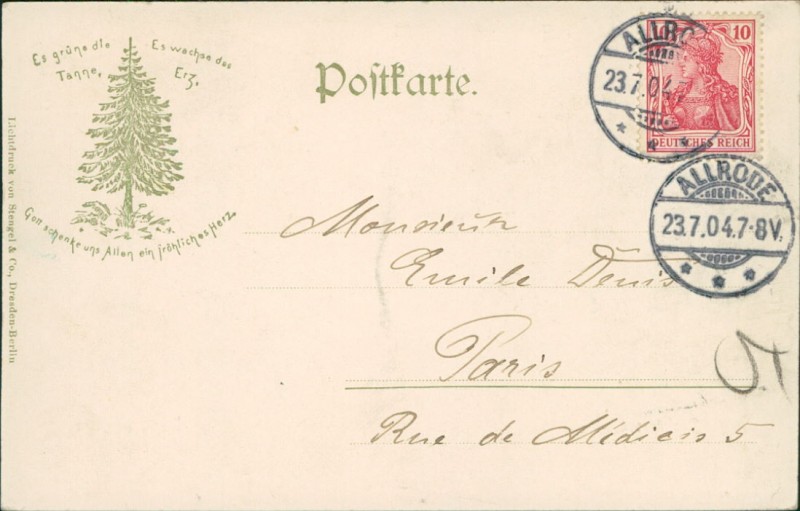 Es grüne die
Tanne,
Es wachse das
Erz,
Gott schenke uns Allen ein fröhliches Herz
Lichtdruck von Stengel & Co., Dresden-Berlin
Poſtkarte.
10
DEUTSCHES REICH
ALLRO
23.7.04.7
ALLRODE
23.7.04.7-8V.
Monsieur
Emile Denis
Paris
Rue de Médicis 5